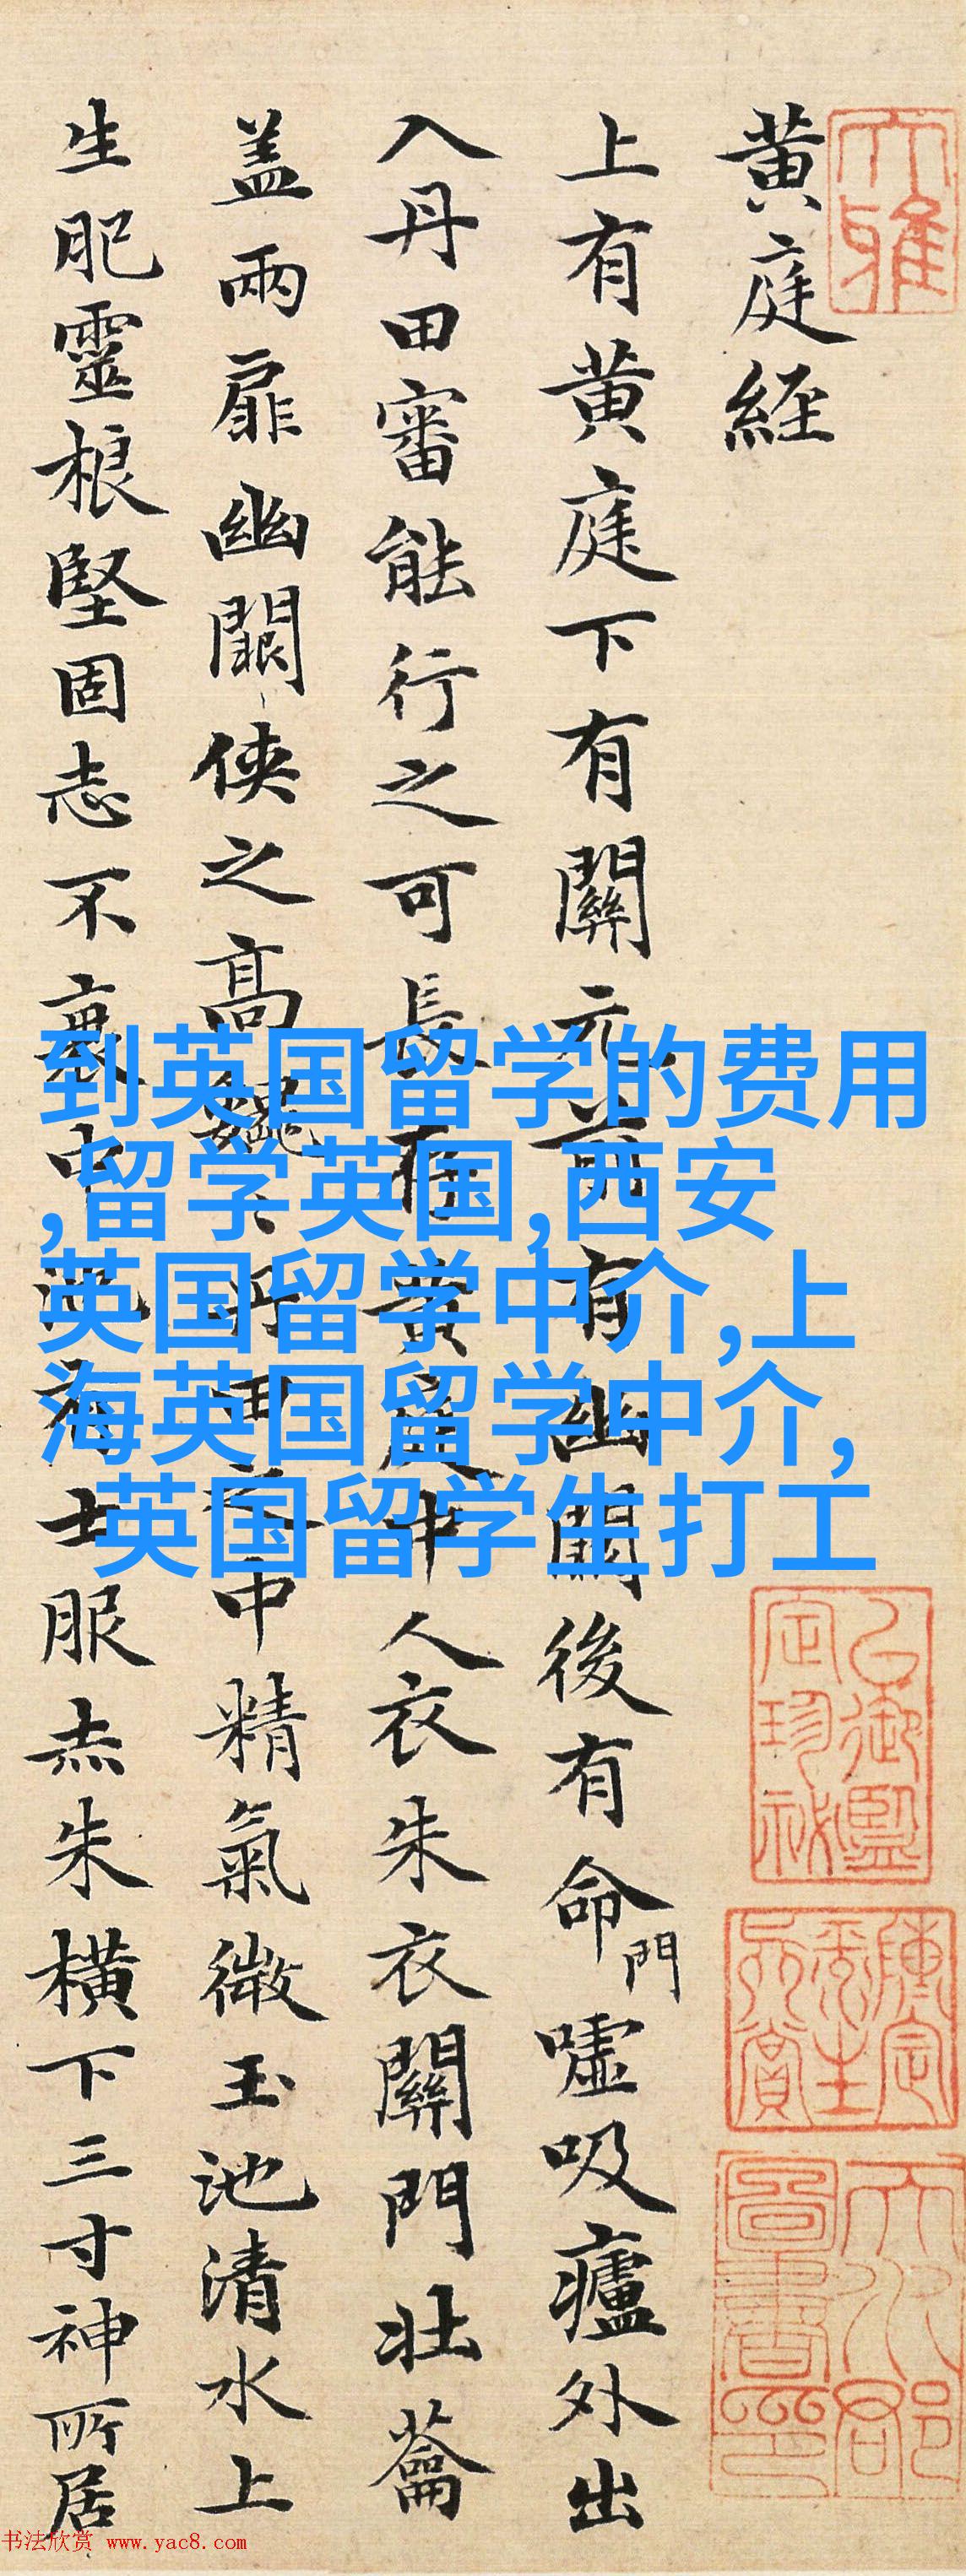 大雅
黄庭経
上有黄庭下有關元前有幽闕後有命門噓吸廬外出
入丹田審能行之可長存黄庭中人衣朱衣關門壯蘥
盖兩扉幽闕俠之高巍丶丹田之中精氣微玉池清水上
生肥靈根堅固志不衰中池有士服赤朱横下三寸神所居
到英国留学的费用
,留学英国,西安
英国留学中介,上
海英国留学中介,
英国留学生打工
书法欣赏 www.yac8.com